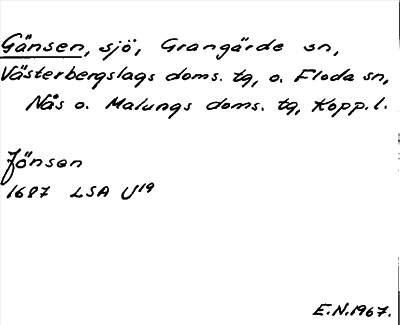 Gänsen, sjö, Grangärde sn,
Västerbergslags doms. tg, o. Floda sn,
Nås o. Malungs doms. tg, Kopp.l.
Jönsen
1687 LSA U19
E.N.1967.